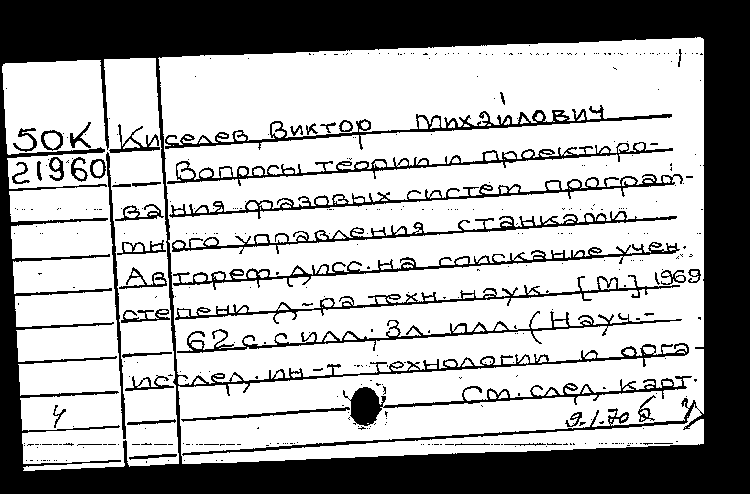 50К Киселев, Виктор Михайлович
21960 Вопросы теории и проектиро-
вания фазовых систем програм-
много управления станками.
Автореф. дисс. на соискание учен.
степени д-ра техн. наук. [М.], 1969.
62 с. с илл.; 3 л. илл. (Науч.-
исслед. ин-т технологии и орга-
См. след. карт.
9.1.70